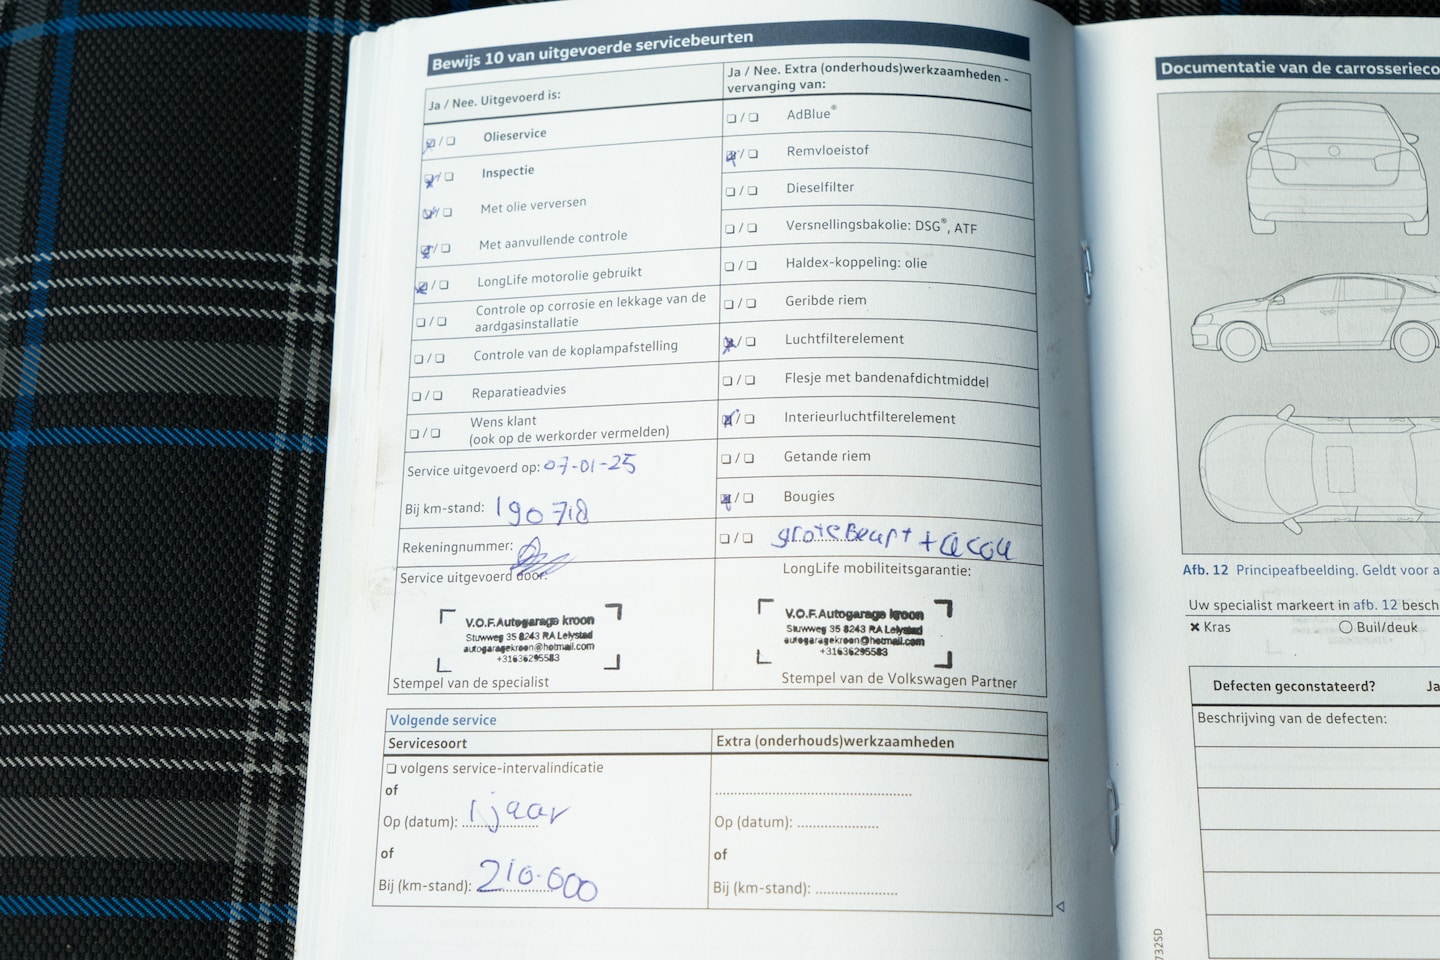 Bewijs 10 van uitgevoerde servicebeurten
Ja / Nee. Uitgevoerd is:
Olieservice
Inspectie
Met olie verversen
Met aanvullende controle
LongLife motorolie gebruikt
Controle op corrosie en lekkage van de
aardgasinstallatie
Controle van de koplampafstelling
Reparatieadvies
Wens klant
(ook op de werkorder vermelden)
Service uitgevoerd op: 07-01-25
Bij km-stand: 190718
Rekeningnummer:
Service uitgevoerd door:
V.O.F. Autogarage kroon
Stuwweg 35 8243 RA Lelystad
autogaragekroon@hotmail.com
+31636295583
Stempel van de specialist
Ja / Nee. Extra (onderhouds)werkzaamheden -
vervanging van:
AdBlue®
Remvloeistof
Dieselfilter
Versnellingsbakolie: DSG®, ATF
Haldex-koppeling: olie
Geribde riem
Luchtfilterelement
Flesje met bandenafdichtmiddel
Interieurluchtfilterelement
Getande riem
Bougies
grote Beurt +
LongLife mobiliteitsgarantie:
V.O.F. Autogarage kroon
Stuwweg 35 8243 RA Lelystad
autogaragekroon@hotmail.com
+31636295583
Stempel van de Volkswagen Partner
Volgende service
Servicesoort
volgens service-intervalindicatie
of
Op (datum): 1 jaar
of
Bij (km-stand): 210.000
Extra (onderhouds)werkzaamheden
Op (datum):
of
Bij (km-stand):
Documentatie van de
Afb. 12 Principeafbeelding. Geldt voor
Uw specialist markeert in afb. 12
× Kras
Buil/deuk
Defecten geconstateerd?
Ja
Beschrijving van de defecten:
732SD